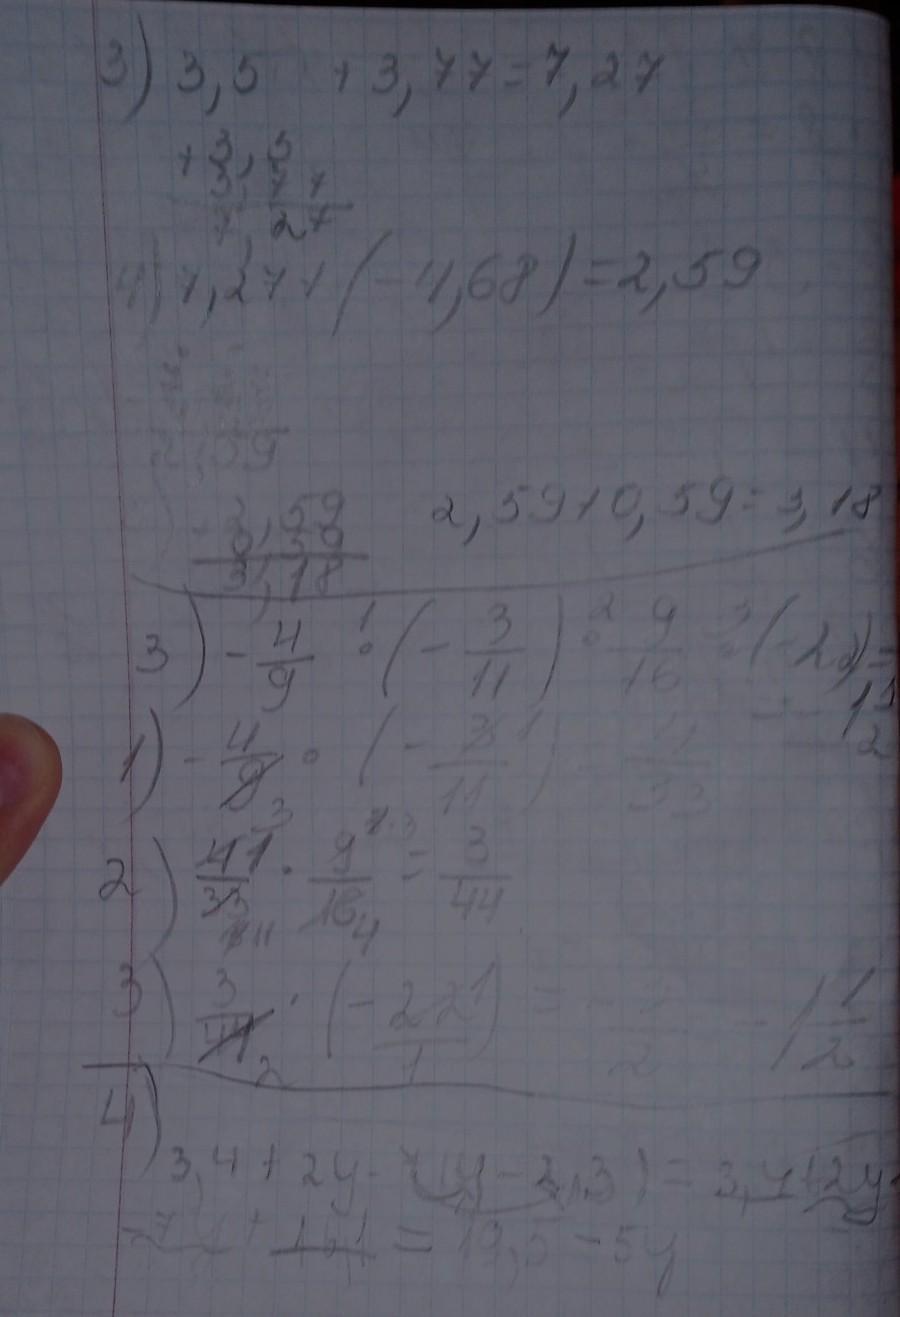 3) 3,5 + 3,77 = 7,27
+ 3,5
3,77
7,27
4) 7,27 + (-4,68) = 2,59
2,59
2,59 2,59 + 0,59 = 3,18
0,59
3,18
3) - 4/9 · (- 3/11) · 9/16 · (-22) =
1) - 4/9 · (- 3/11) 4/33
2) 4/33 · 9/16 = 3/44
3) 3/44 · (- 22/1) = - 3/2 = - 1 1/2
4)
3,4 + 2y - 7(y - 2,3) = 3,4 + 2y -
- 7y + 16,1 = 19,5 - 5y